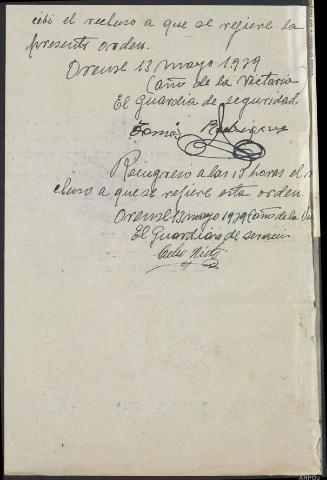 cibi el recluso a que se refiere la
presente orden.
Orense 13 mayo 1939
(año de la Victoria
El guardia de seguridad
Tomás Rodriguez
Reingreso a las 13 horas el re
cluso a que se refiere esta orden.
Orense 13 mayo 1939 (año de la Vi
El Guardian de servicio